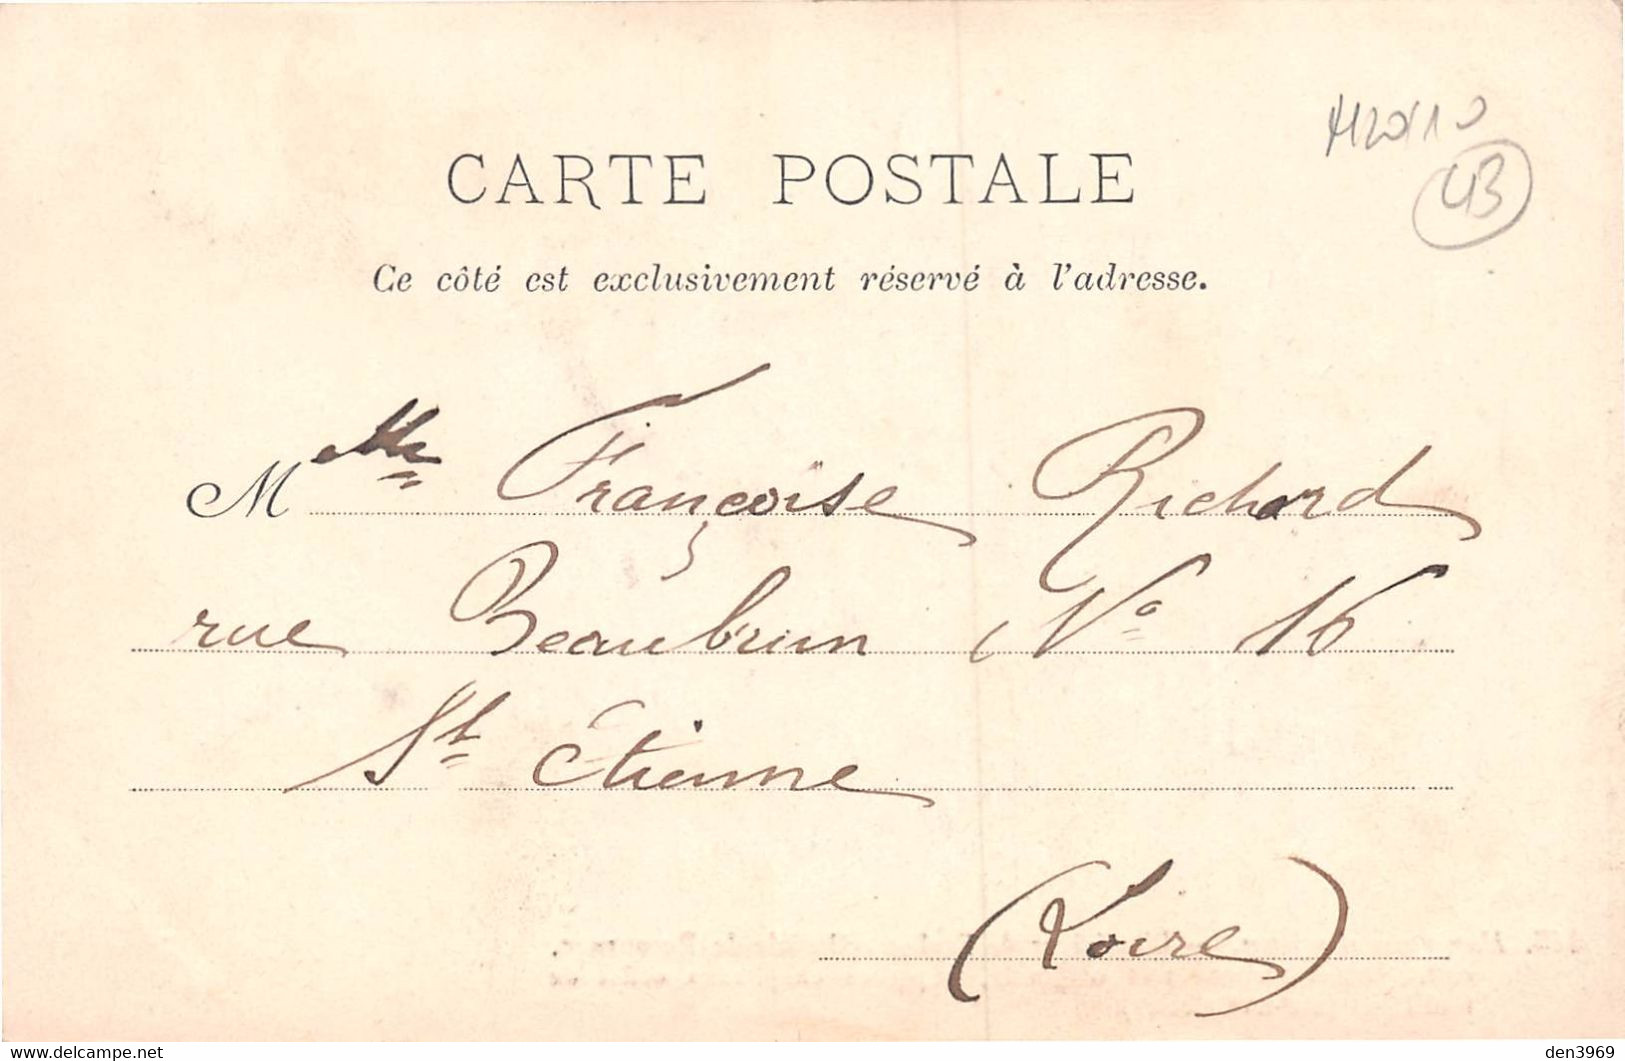 CARTE POSTALE
43
Ce côté est exclusivement réservé à l'adresse.
Mlle Françoise Richard
rue Beaubrun No 16
St Étienne
(Loire)
www.delcampe.net
den3969